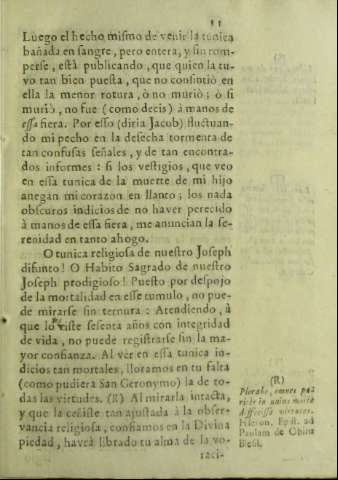 11
Luego el hecho mismo de venir la tunica
bañada en sangre, pero entera, y sin rom-
perse, està publicando, que quien la tu-
vo tan bien puesta, que no consintiò en
ella la menor rotura, ò no muriò; ò si
muriò, no fue (como decis) à manos de
essa fiera. Por esso (diria Jacob) fluctuan-
do mi pecho en la desecha tormenta de
tan confusas señales, y de tan encontra-
dos informes: si los vestigios, que veo
en essa tunica de la muerte de mi hijo
anegan mi corazon en llanto; los nada
obscuros indicios de no haver perecido
à manos de essa fiera, me anuncian la se-
renidad en tanto ahogo.
O tunica religiosa de nuestro Joseph
difunto! O Habito Sagrado de nuestro
Joseph prodigioso! Puesto por despojo
de la mortalidad en esse tumulo, no pue-
de mirarse sin ternura: Atendiendo, à
que lo viste sesenta años con integridad
de vida, no puede registrarse sin la ma-
yor confianza. Al vèr en essa tunica in-
dicios tan mortales, lloramos en tu falta
(como pudiera San Geronymo) la de to-
das las virtudes. (R) Al mirarla intacta,
y que la ceñiste tan ajustada à la obser-
vancia religiosa, confiamos en la Divina
piedad, havrà librado tu alma de la vo-
raci-
(R)
Plorabo, omnes pa-
riter in unius morte
defecisse virtutes.
Hieron. Epist. ad
Paulam de Obitu
Blesil.